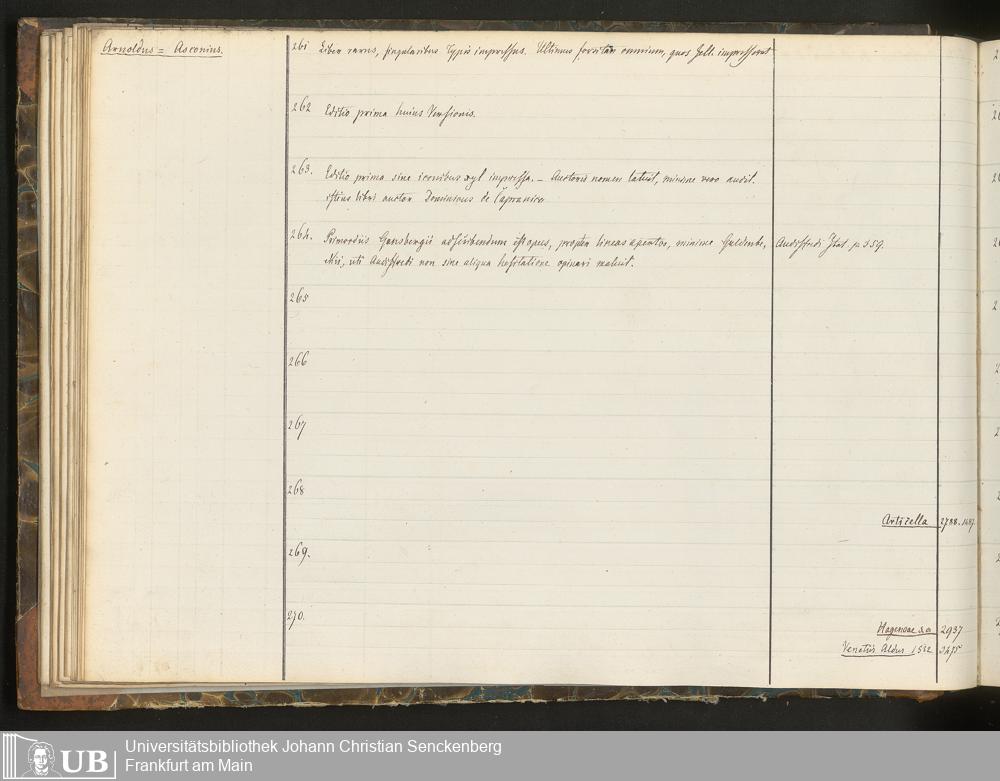 Arnoldus = Asconius.
261 Liber rarus, singularibus typis impressus. Ultimus forsitan omnium, quos impresserat
262 Editio prima huius Versionis.
263. Editio prima sine iconibus xyl impressa. – Auctoris nomen latuit, minime vero audit.
istius libri auctor Dominicus de Capranica
264. Primordiis Gensbergii adscribendum est opus, propter lineas apertos, minime Guldinbe, Audiffredi Ital. p 359.
ckii, uti Audiffredi non sine aliqua hesitatione opinari maluit.
265
266
267
268
Articella 2788.
269.
270.
Hagenoae s.a 2937
Venetiis Aldus 1522 2475
UB Universitätsbibliothek Johann Christian Senckenberg
Frankfurt am Main